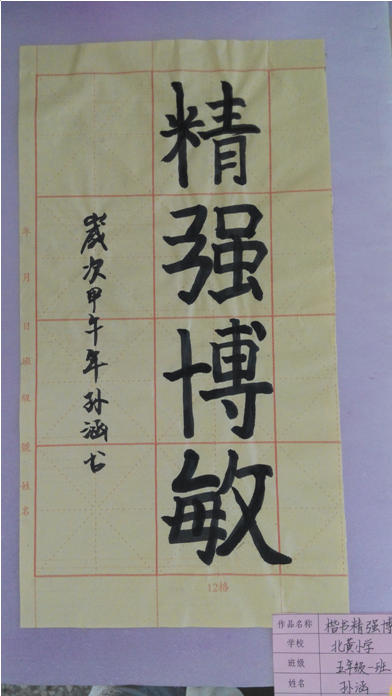 精强博敏
歲次甲午年孙涵书
年月日班级號姓名
12格
作品名称 楷书精强博
学校 北黄小学
班级 五年级一班
姓名 孙涵